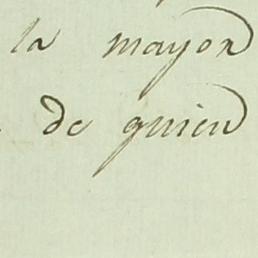 la mayor
de quien